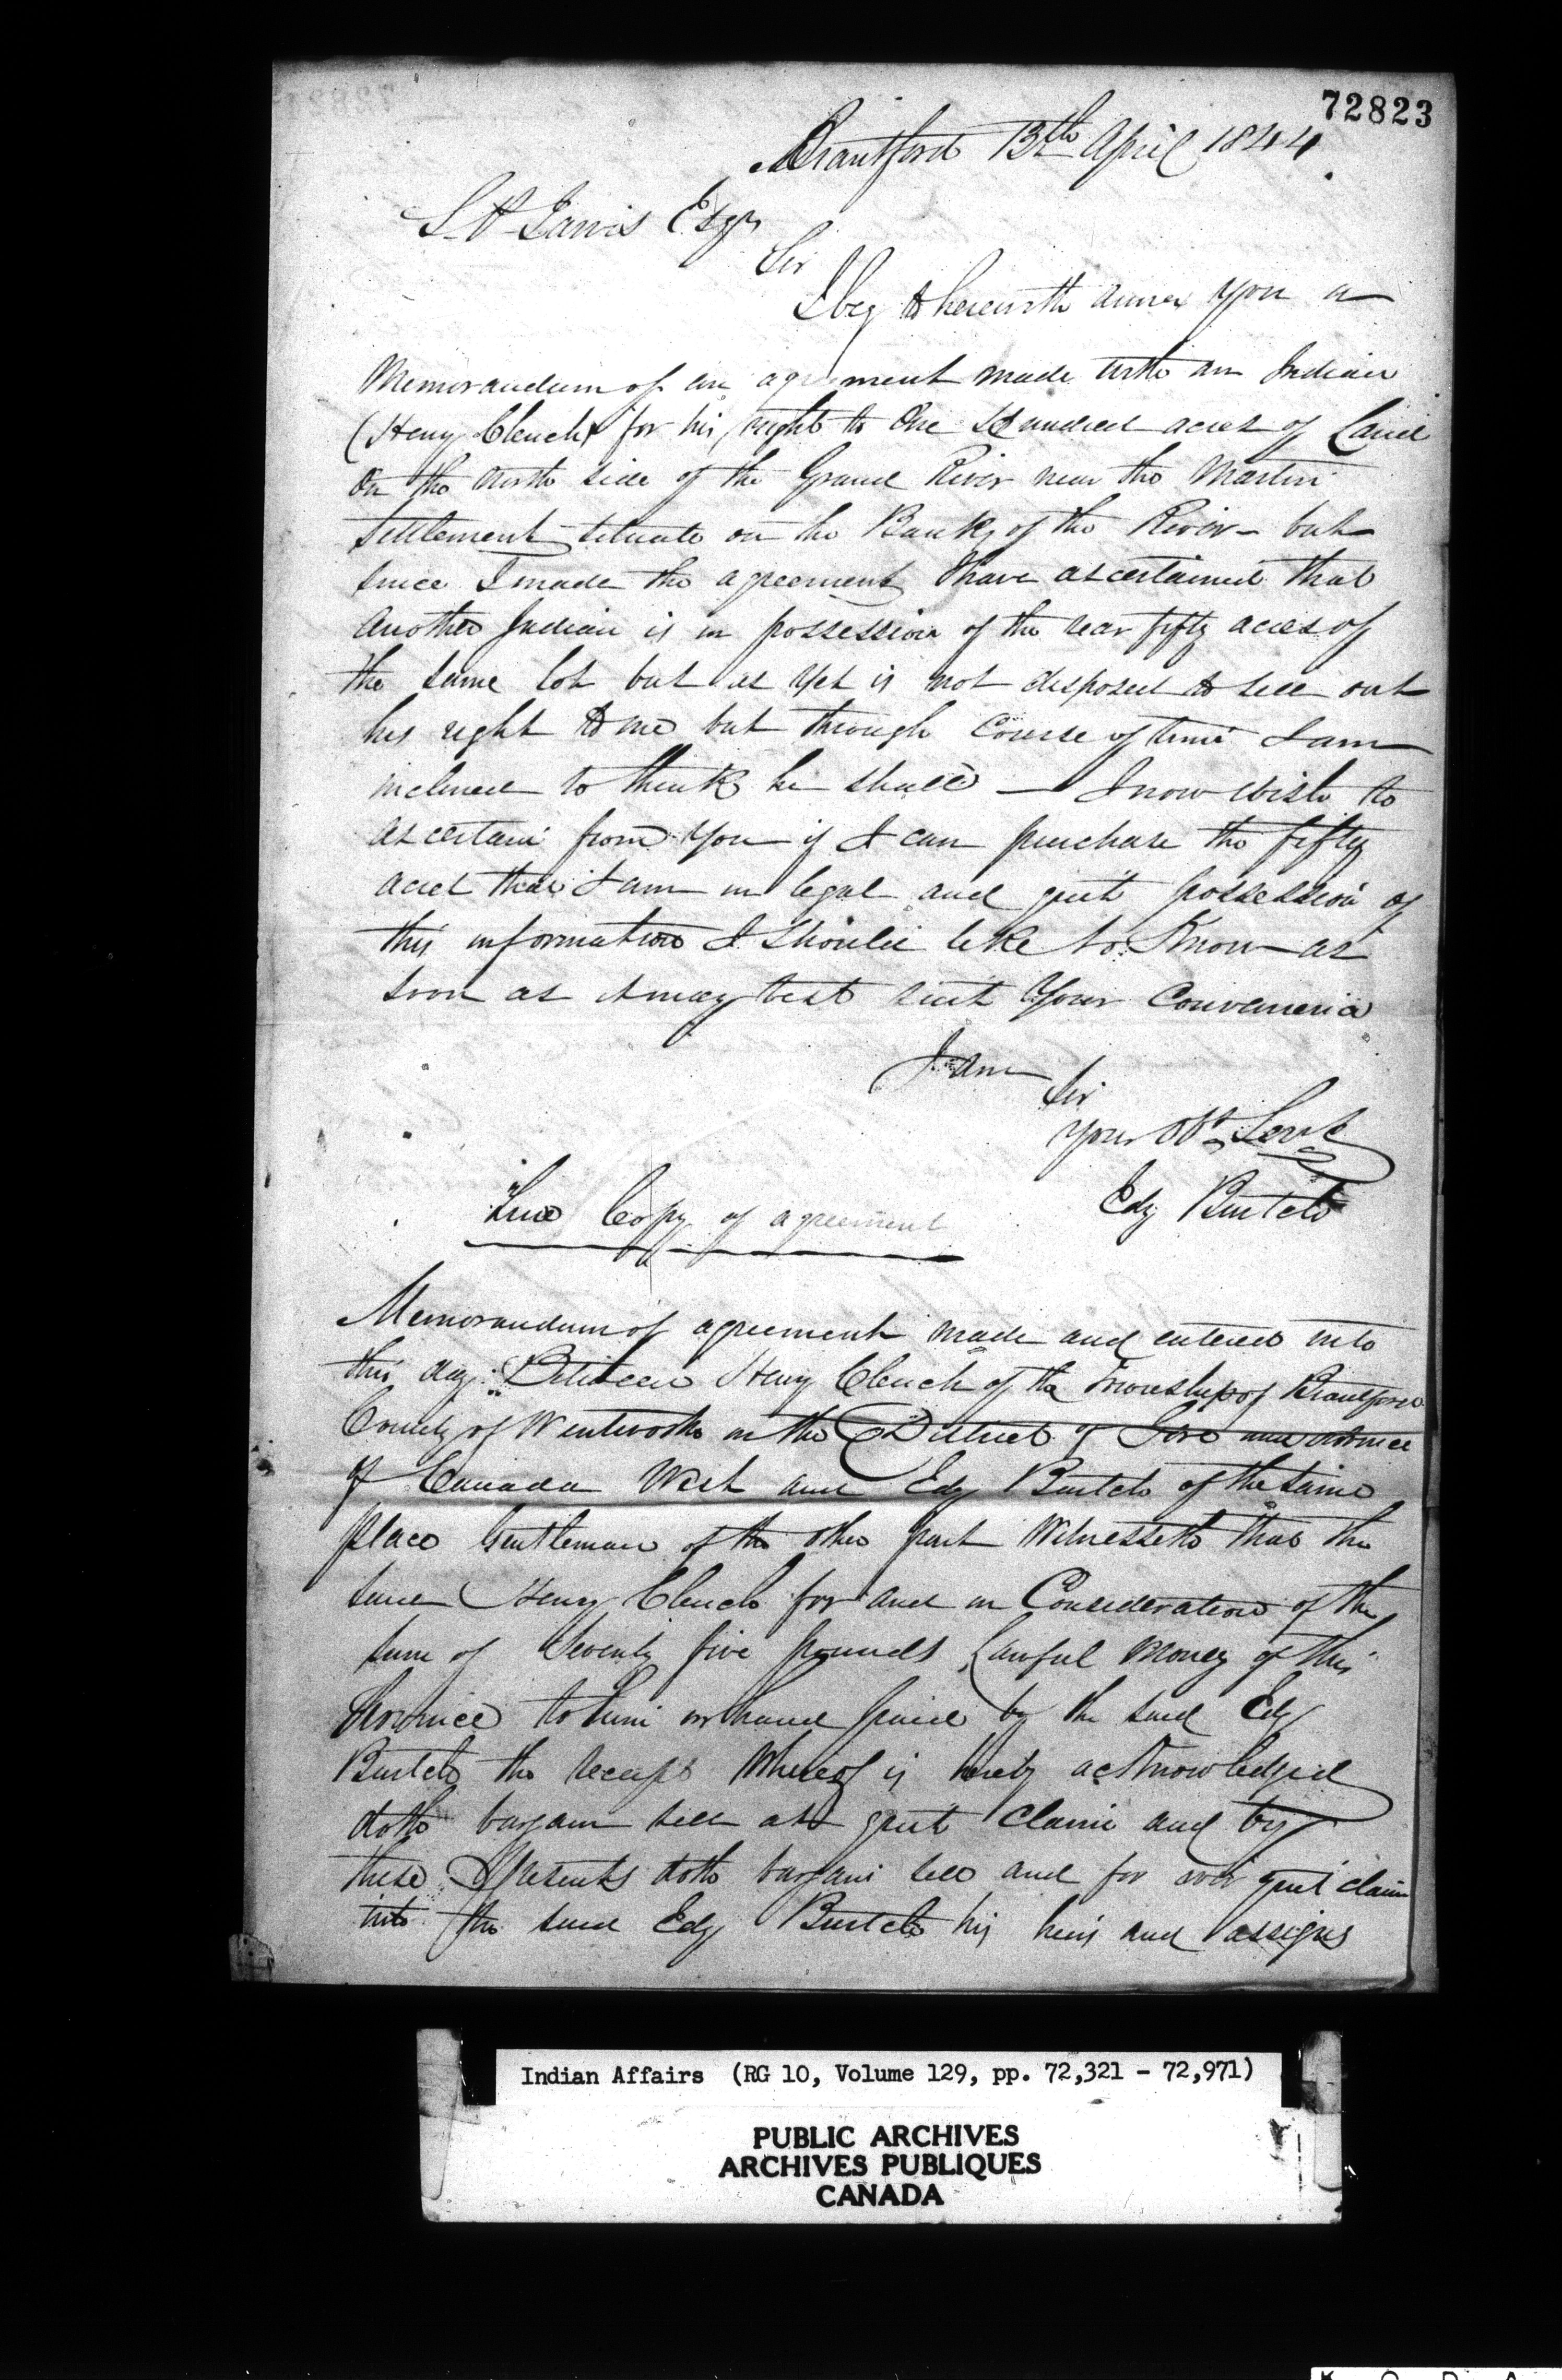 72823
Brantford 13th April 1844
S P Jarvis Esqr
Sir
I beg to herewith annex you a
Memorandum of an agreement made with an Indian
(Henry Clench) for his right to One Hundred acres of Land
On the north side of the Grand River near the Martin
Settlement situate on the Banks of the River - but
since I made the agreement I have ascertained that
another Indian is in possession of the rear fifty acres of
the same lot but as yet is not disposed to sell out
his right to me but through Course of time I am
inclined to think he shall — I now wish to
ascertain from you if I can purchase the fifty
acres that I am in legal and quit possession of
this information I should like to Know as
soon as it may best suit your Convenience
I am
Sir
Your Obt Servt
Edy Burtch
True Copy of agreement
Memorandum of agreement made and entered into
this day Between Henry Clench of the Township of Brantford
County of Wentworth in the District of Gore and Province
of Canada West and Edy Burtch of the same
place Gentleman of the other part Witnesseth that the
said Henry Clench for and in Consideration of the
sum of Seventy five pounds Lawful money of this
Province to him in hand paid by the said Edy
Burtch the receipt whereof is hereby acknowledged
doth bargain sell and quit claim and by
these Presents doth bargain sell and for ever quit claim
unto the said Edy Burtch his heirs and assigns
Indian Affairs (RG 10, Volume 129, pp. 72,321 - 72,971)
PUBLIC ARCHIVES
ARCHIVES PUBLIQUES
CANADA